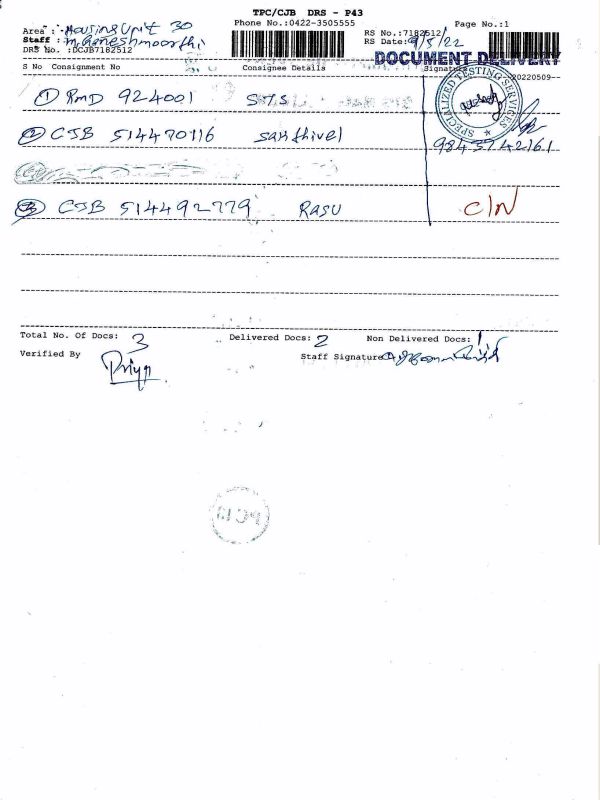 TPC/CJB DRS - P43
Area : Housing Unit 30
Phone No.:0422-3505555
Page No.:1
Staff : M.Ganeshmoorthi
RS No.:7182512
RS Date: 9/5/22
DRS No. :DCJB7182512
DOCUMENT DELIVERY
S No Consignment No Consignee Details Signature
20220509--
① RMD 924001 STS
SPECIALIZED TESTING SERVICES
② CJB 514470116 Sakthivel
9843742161
③ CJB 514492779 RASU C/N
Total No. Of Docs: 3 Delivered Docs: 2 Non Delivered Docs: 1
Verified By Priya Staff Signature